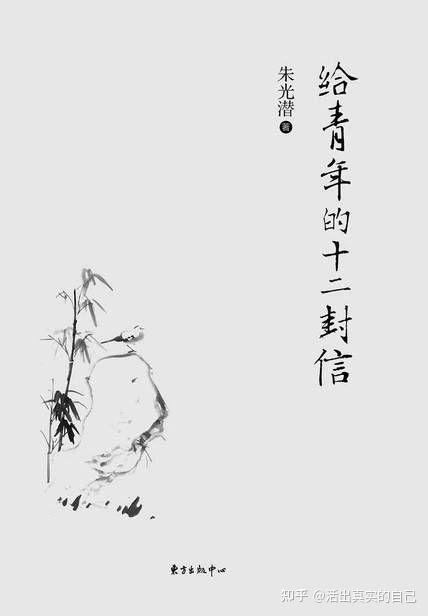 给青年的十二封信
朱光潜 著
东方出版中心
知乎 @活出真实的自己